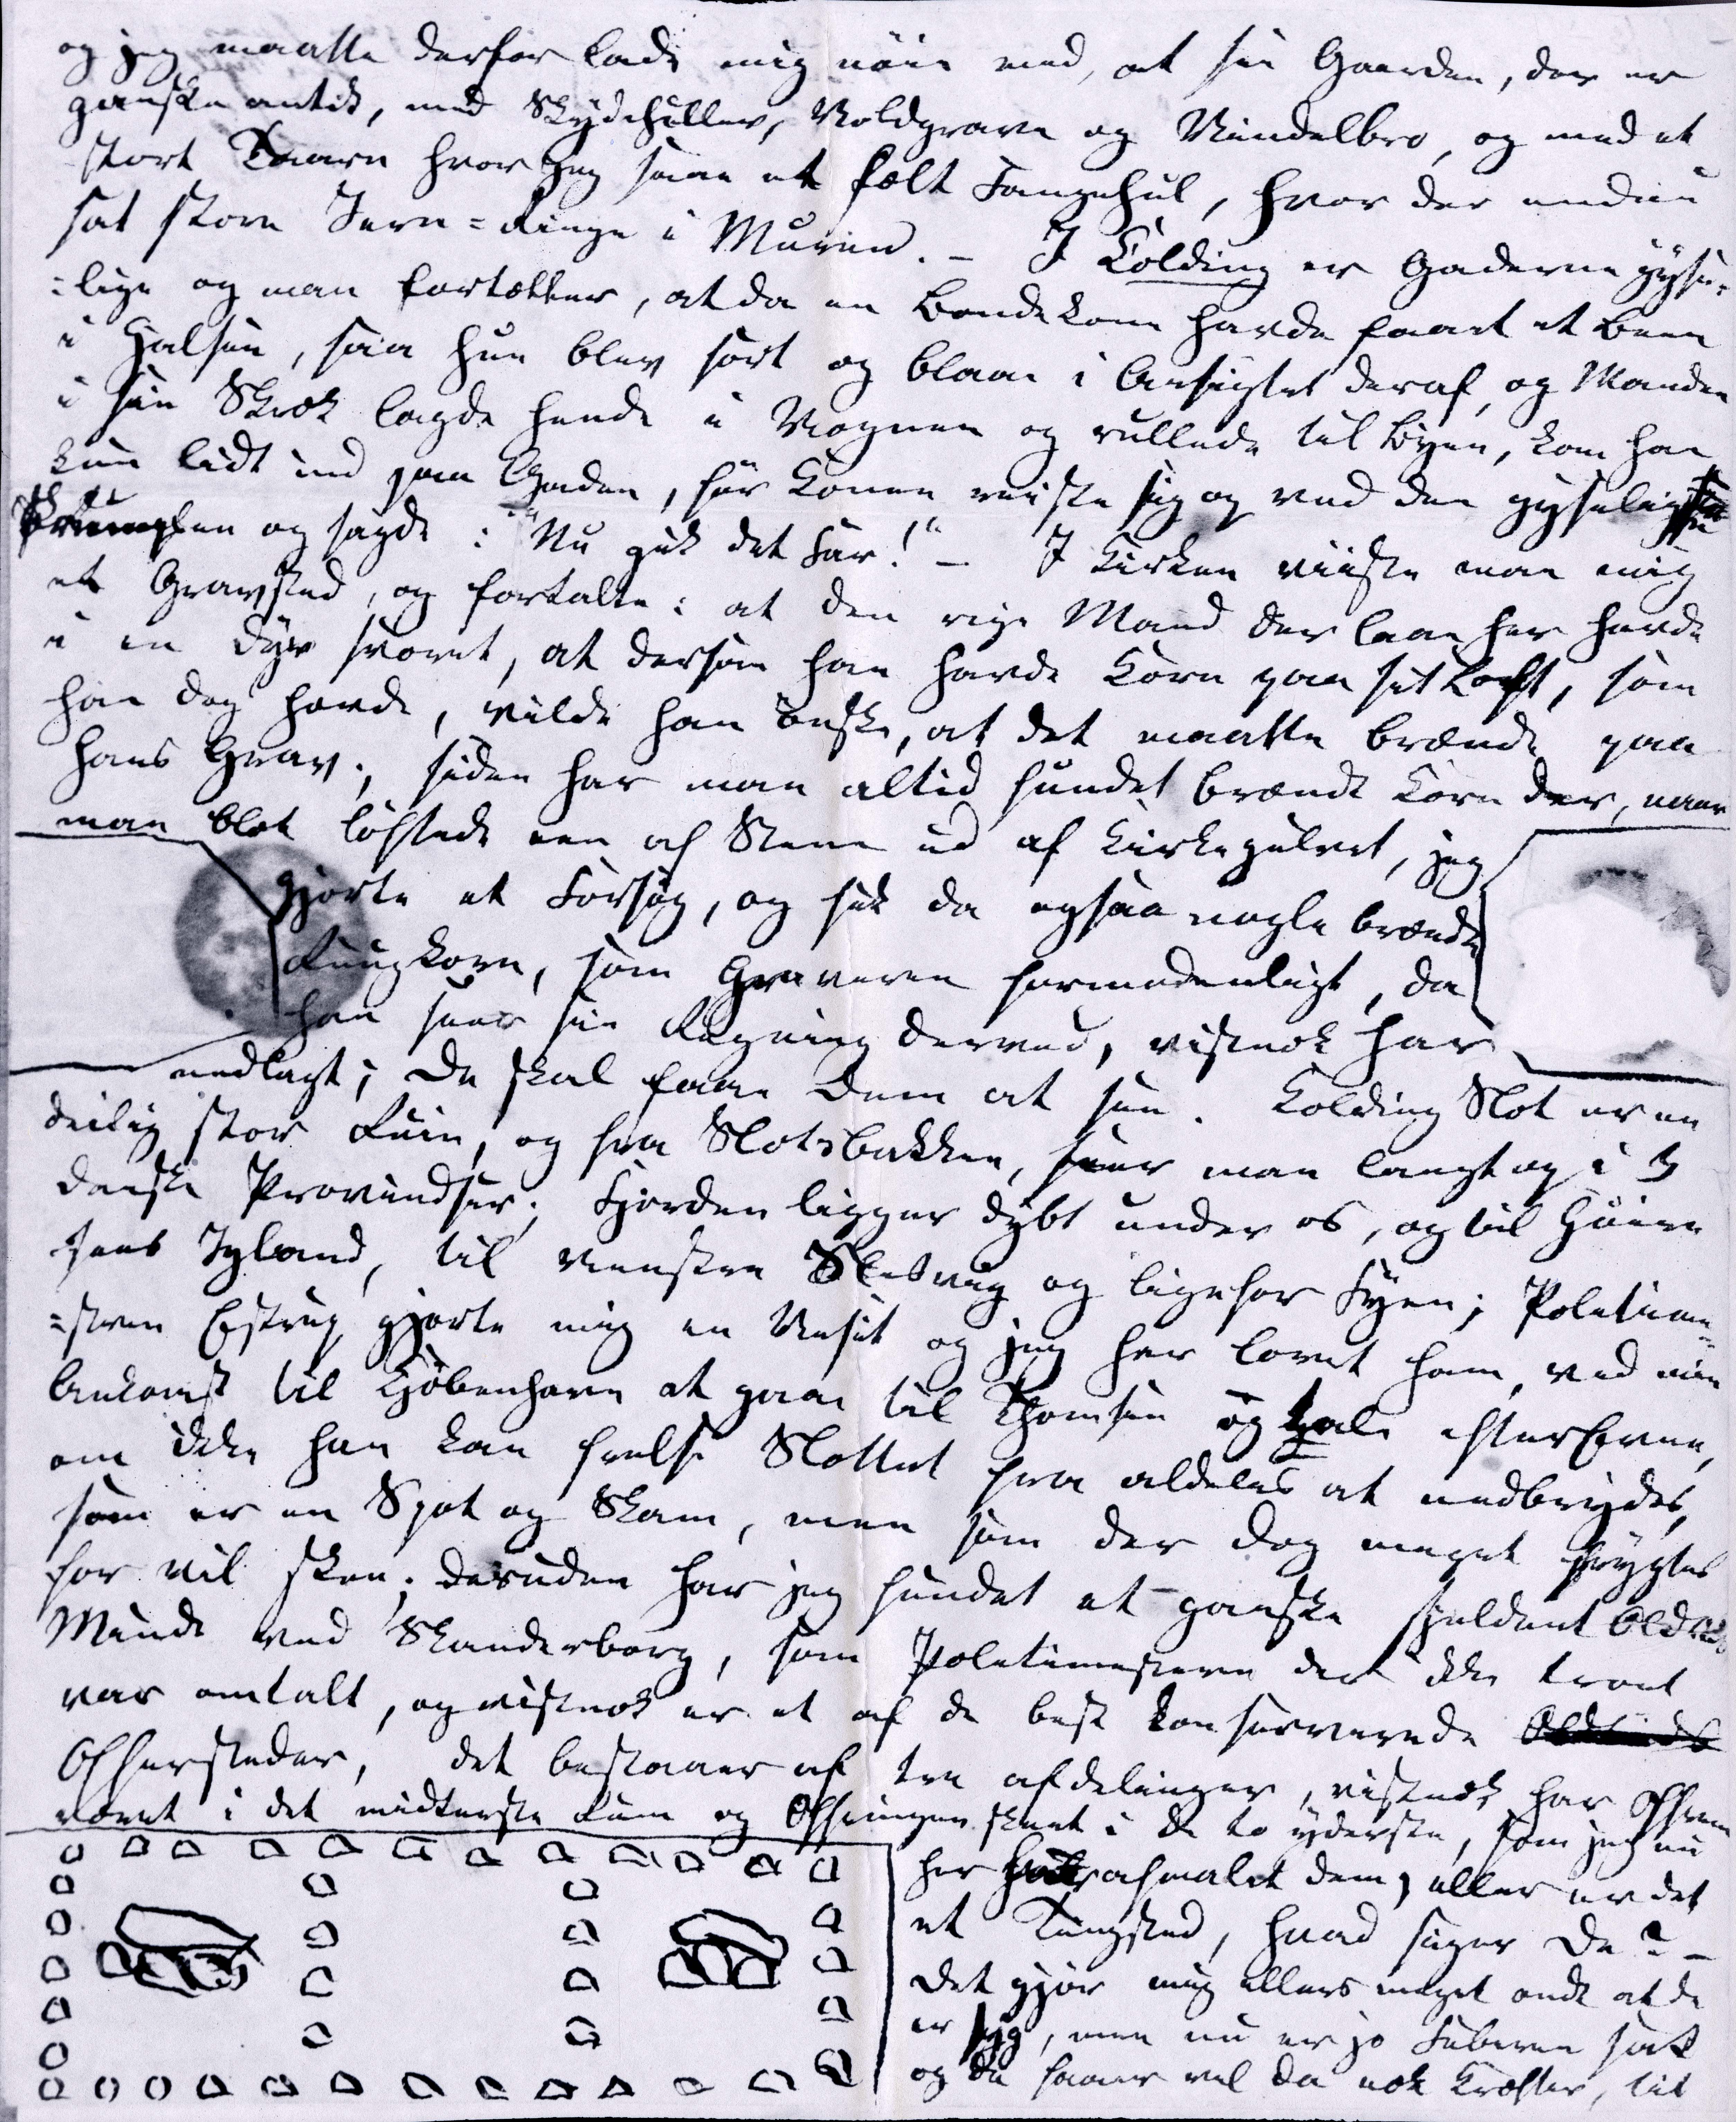 og jeg maatte derfor lade mig nöie med, at see Gaarden, der er
ganske antik, med Skydehuller, Voldgrave og Vindelbro, og med et
stort Taarn hvor jeg saae et fælt Fangehul, hvor der endnu
sat store Jern=Ringe i Muren. – I Kolding er Gaderne gyse=
=lige og man fortæller, at da en Bondekone havde faaet et Been
i Halsen, saa hun blev sort og blaae i Ansigtet deraf, og Manden
i sin Skræk lagde hende i Vognen og rullede til Byen, kom han
kun lidt ind paa Gaden, før Konen reiste sig og ved den gyselige
og sagde: "Nu gik det Fær!" – I Kirken viiste man mig
et Gravsted, og fortalte: at den rige Mand der laae her havde
i en dyr svoret, at dersom han havde Korn paa sit Loft, som
han dog havde, vilde han önske, at det maatte brænde paa
hans Grav; siden har man altid fundet brændt Korn der, naar
man blot löftede een af Stene ud af Kirkegulvet, jeg
gjorte et Forsög, og fik da ogsaa nogle brændte
Rugkorn, som Graveren formodenligt, da
han seer sin Regning derved, vistnok har
nedlagt; De skal faae dem at see. Kolding Slot er en
deilig stor Ruin, og fra Slotsbakken, seer man langt op i 3
danske Provindser; Fjorden ligger dybt under os, og til Höire
sees Jylland, til venstre Slesvig og ligefor Fyen; Politime=
=steren Estrup gjorte mig en Visit og jeg har lovet ham, ved min
Ankomst til Kjöbenhavn at gaae til Thomsen og tale efter Evne,
om ikke han kan frelse Slottet fra aldeles at nedbrydes,
som er en Spot og Skam, men som der dog meget frygtes
for vil skee; desuden har jeg fundet et ganske sjeldent Oldtids
Minde ved Skanderborg, som Politimesteren der ikke troet
var omtalt, og vistnok er et af de best konserverede
Offersteder, det bestaaer af tre afdelinger, vistnok har
været i det midterste Rum og Offringen skeet i de to yderste, som jeg nu
her har afmalet dem, eller er det
et Tingsted, hvad siger De? –
Det gjör mig ellers meget ondt at De
er syg, men nu er jo Feberen sat
og De faaer vel da nok Kræfter, lit